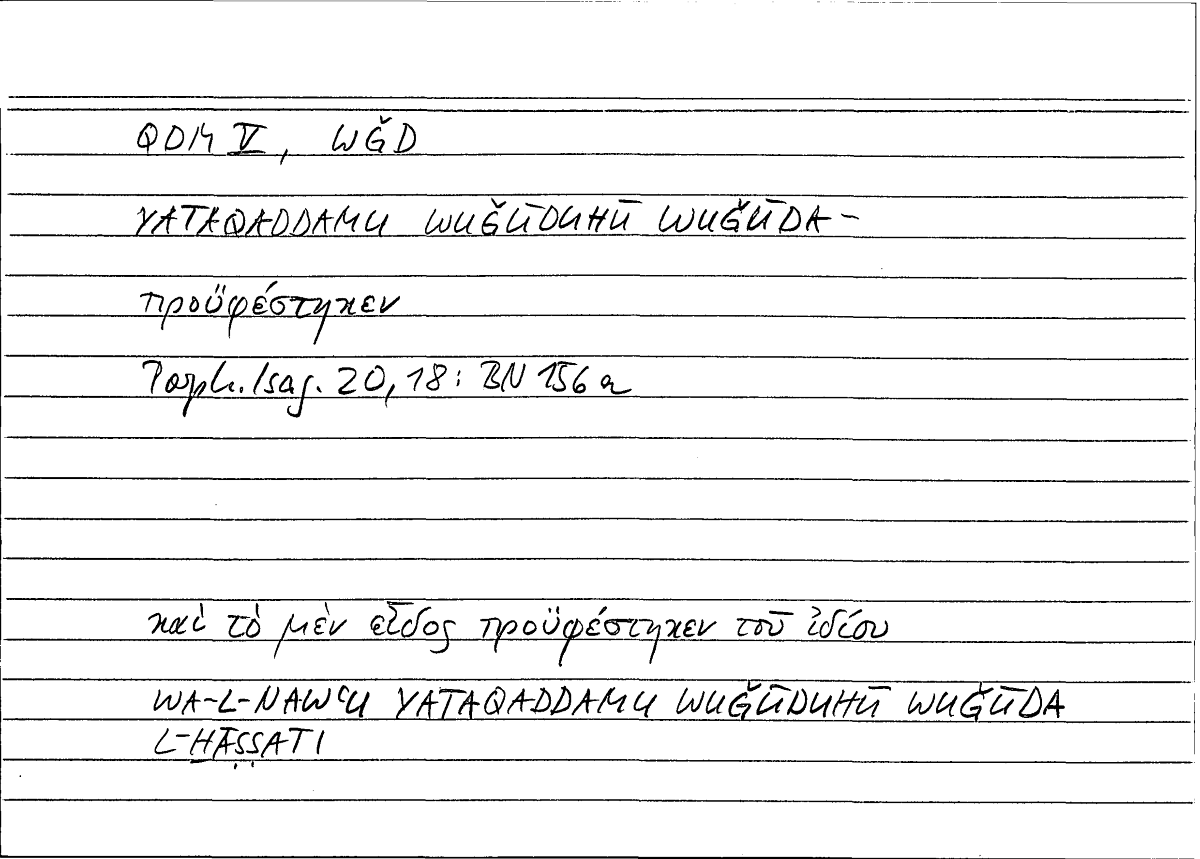 QDM V, WǦD
YATAQADDAMU WUǦŪDUHŪ WUǦŪDA-
προϋφέστηκεν
Porph. Isag. 20,18: BN 156 a
καὶ τὸ μὲν εἶδος προϋφέστηκεν τοῦ ἰδίου
WA-L-NAWʿU YATAQADDAMU WUǦŪDUHŪ WUǦŪDA
L-ḪĀṢṢATI